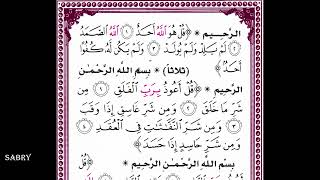 الرَّحِيمِ * ﴿قُلْ هُوَ اللَّهُ أَحَدٌ ۝١ اللَّهُ الصَّمَدُ
۝٢ لَمْ يَلِدْ وَلَمْ يُولَدْ ۝٣ وَلَمْ يَكُن لَّهُ كُفُوًا
أَحَدٌ﴾ (ثلاثاً) * بِسْمِ اللَّهِ الرَّحْمَٰنِ
الرَّحِيمِ * ﴿قُلْ أَعُوذُ بِرَبِّ الْفَلَقِ ۝١ مِن
شَرِّ مَا خَلَقَ ۝٢ وَمِن شَرِّ غَاسِقٍ إِذَا وَقَبَ
۝٣ وَمِن شَرِّ النَّفَّاثَاتِ فِي الْعُقَدِ ۝٤
وَمِن شَرِّ حَاسِدٍ إِذَا حَسَدَ﴾
بِسْمِ اللَّهِ الرَّحْمَٰنِ الرَّحِيمِ * ﴿قُلْ
SABRY